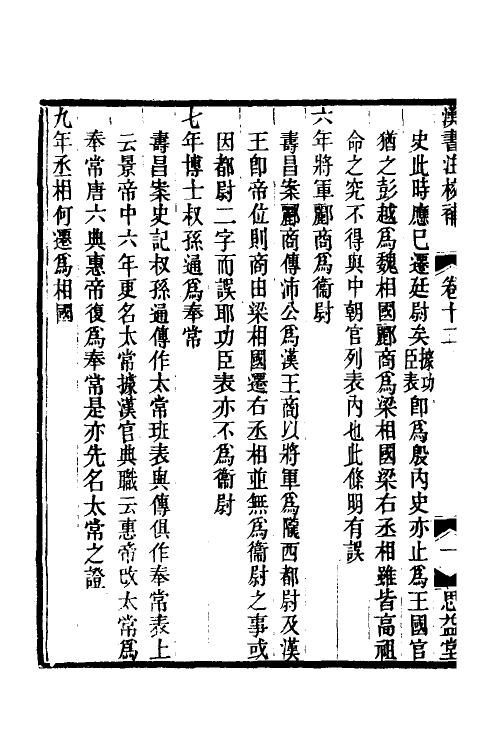 漢書注校補 卷十二 一 思益堂
史此時應已遷廷尉矣據功臣表卽爲殷內史亦止爲王國官
猶之彭越爲魏相國酈商爲梁相國梁右丞相雖皆高祖
命之究不得與中朝官列表內也此條明有誤
六年將軍酈商爲衞尉
壽昌案酈商傳沛公爲漢王商以將軍爲隴西都尉及漢
王卽帝位則商由梁相國遷右丞相並無爲衞尉之事或
因都尉二字而誤耶功臣表亦不爲衞尉
七年博士叔孫通爲奉常
壽昌案史記叔孫通傳作太常班表與傳俱作奉常表上
云景帝中六年更名太常據漢官典職云惠帝改太常爲
奉常唐六典惠帝復爲奉常是亦先名太常之證
九年丞相何遷爲相國